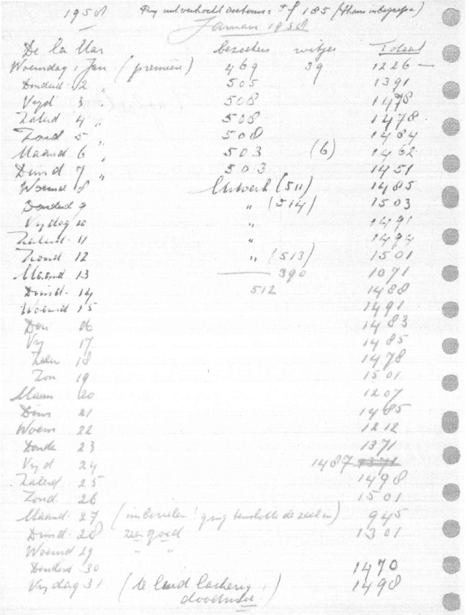 1958
Januari 1958
De la Mar bezoekers witjes Totaal
Woensdag 1 Jan (première) 469 39 1226 —
Donderd 2 505 1391
Vrijd 3 " 508 1478
Zaterd 4 " 508 1478
Zond 5 " 508 1484
Maand 6 " 503 (6) 1462
Dinsd 7 " 503 1451
Woensd 8 Uitverk (511) 1485
Donderd 9 " (514) 1503
Vrijdag 10 " 1491
Zaterd. 11 " 1494
Zond 12 " (513) 1501
Maand 13 —— 390 1071
Dinsd. 14 512 1488
Woensd 15 1491
Don 16 1483
Vrij 17 1485
Zater 18 1478
Zon 19 1501
Maan 20 1207
Dins 21 1485
Woens 22 1212
Donde 23 1371
Vrijd 24 1487
Zaterd. 25 1498
Zond. 26 1501
Maand. 27 945
Dinsd. 28 zeer goed 1301
Woensd 29 " "
Donderd 30 1470
Vrijdag 31 1498